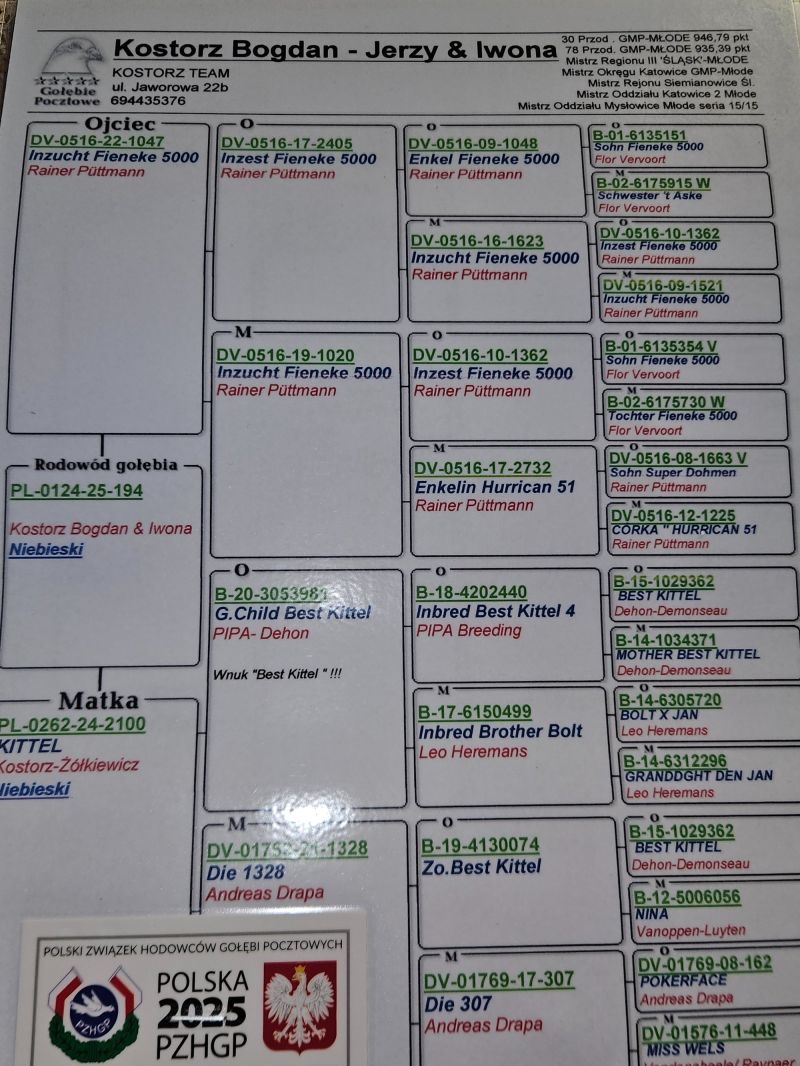 Kostorz Bogdan - Jerzy & Iwona
KOSTORZ TEAM
ul. Jaworowa 22b
694435376
Gołębie
Pocztowe
30 Przod . GMP-MŁODE 946,79 pkt
78 Przod. GMP-MŁODE 935,39 pkt
Mistrz Regionu III 'ŚLĄSK'-MŁODE
Mistrz Okręgu Katowice GMP-Młode
Mistrz Rejonu Siemianowice Śl.
Mistrz Oddziału Katowice 2 Młode
Mistrz Oddziału Mysłowice Młode seria 15/15
Ojciec
DV-0516-22-1047
Inzucht Fieneke 5000
Rainer Püttmann
Rodowód gołębia
PL-0124-25-194
Kostorz Bogdan & Iwona
Niebieski
Matka
PL-0262-24-2100
KITTEL
Kostorz-Żółkiewicz
Niebieski
O
DV-0516-17-2405
Inzest Fieneke 5000
Rainer Püttmann
M
DV-0516-19-1020
Inzucht Fieneke 5000
Rainer Püttmann
O
B-20-3053981
G.Child Best Kittel
PIPA- Dehon
Wnuk "Best Kittel " !!!
M
1328
Die 1328
Andreas Drapa
O
DV-0516-09-1048
Enkel Fieneke 5000
Rainer Püttmann
M
DV-0516-16-1623
Inzucht Fieneke 5000
Rainer Püttmann
O
DV-0516-10-1362
Inzest Fieneke 5000
Rainer Püttmann
M
DV-0516-17-2732
Enkelin Hurrican 51
Rainer Püttmann
O
B-18-4202440
Inbred Best Kittel 4
PIPA Breeding
M
B-17-6150499
Inbred Brother Bolt
Leo Heremans
O
B-19-4130074
Zo.Best Kittel
M
DV-01769-17-307
Die 307
Andreas Drapa
O
B-01-6135151
Sohn Fieneke 5000
Flor Vervoort
M
B-02-6175915 W
Schwester 't Aske
Flor Vervoort
O
DV-0516-10-1362
Inzest Fieneke 5000
Rainer Püttmann
M
DV-0516-09-1521
Inzucht Fieneke 5000
Rainer Püttmann
O
B-01-6135354 V
Sohn Fieneke 5000
Flor Vervoort
M
B-02-6175730 W
Tochter Fieneke 5000
Flor Vervoort
O
DV-0516-08-1663 V
Sohn Super Dohmen
Rainer Püttmann
M
DV-0516-12-1225
CÓRKA " HURRICAN 51
Rainer Püttmann
O
B-15-1029362
BEST KITTEL
Dehon-Demonseau
M
B-14-1034371
MOTHER BEST KITTEL
Dehon-Demonseau
O
B-14-6305720
BOLT X JAN
Leo Heremans
M
B-14-6312296
GRANDDGHT DEN JAN
Leo Heremans
O
B-15-1029362
BEST KITTEL
Dehon-Demonseau
M
B-12-5006056
NINA
Vanoppen-Luyten
O
DV-01769-08-162
POKERFACE
Andreas Drapa
M
DV-01576-11-448
MISS WELS
POLSKI ZWIĄZEK HODOWCÓW GOŁĘBI POCZTOWYCH
PZHGP
POLSKA
2025
PZHGP